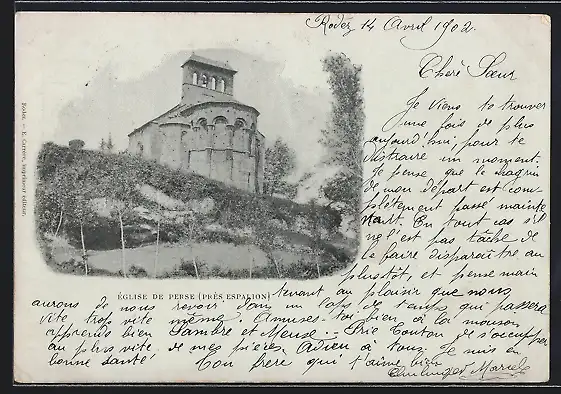 Rodez 14 Avril 1902
Chère Sœur
Je viens te trouver
une fois de plus
aujourd'hui, pour te
distraire un moment.
Je pense que le chagrin
de mon départ est com-
plètement passé mainte
nant. En tout cas s'il
ne l'est pas tâche de
le faire disparaître au
plustôt, et pense main
tenant au plaisir que nous
aurons à nous revoir dans un laps de temps qui passera
vite trop vite même, Amuses-toi bien à la mouson
apprends bien Sambre et Meuse. Prie Tonton de s'occuper
au plus vite de mes pierres Adieu à tous, Je suis en
bonne santé! Ton frère qui t'aime bien
Marcel
ÉGLISE DE PERSE (PRÈS ESPALION)
Rodez. — E. Carrère, imprimeur éditeur.